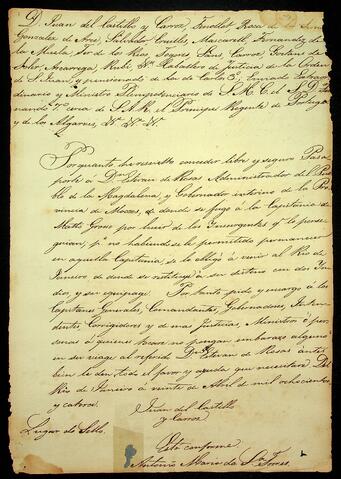 D. Juan del Castillo y Carroz, Fenollet Roca
Gonzalez de Cruilles Mascarell, Fernandez de
la Muela Fr. de los Rios
Caballero de Justicia de la Orden
de S. Juan, y pensionado de la de Carlos 3º, Enviado Extraor
dinario y Ministro Plenipotenciario de S. M. C. el S. D. Fer
nando 7º cerca de S. A. R. el Principe Regente de Portugal
y de los Algarves, &ª &ª &ª
Por quanto he resuelto conceder libre y seguro Pasa
porte á Dn Estevan de Rosas Administrador del Pue
blo de la Magdalena, y Gobernador interino de la Pro
vincia de Moxos, de donde se fugó á la Capitania de
Mato Groso por huir de los Insurgentes qe lo perse
guian, pr no habiendosele permitido permanecer
en aquella Capitania, se le obligó á venir al Rio de
Janeiro de donde se restituye á su destino con dos In
dios, y su equipage. Por tanto pido y encargo á los
Capitanes Generales, Comandantes, Gobernadores, Inten
dentes, Corregidores y demas Justicias, Ministros ó per
sonas á quienes tocare no pongan embarazo alguno
en su viage al referido Dn Estevan de Rosas antes
bien le den todo el favor y ayuda que necesitare. Del
Rio de Janeiro á veinte de Abril de mil ochocientos
y catorce.
Juan del Castillo
y Carroz
Lugar de Sello.
Está conforme
Antonio Maria da Sª Torres